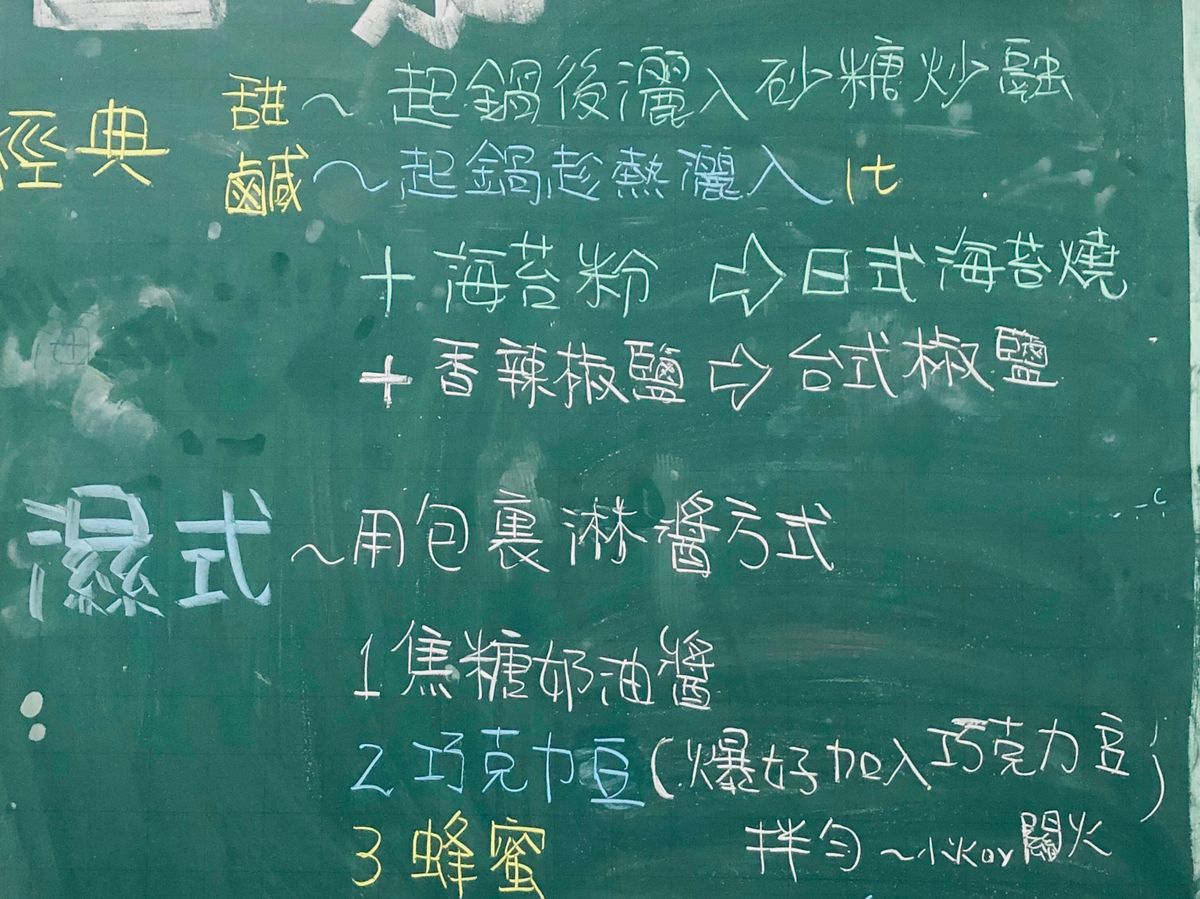 經典 甜～起鍋後灑入砂糖炒融
鹹～起鍋趁熱灑入1t
+海苔粉⇨日式海苔燒
+香辣椒鹽⇨台式椒鹽
濕式～用包裹淋醬方式
1焦糖奶油醬
2巧克力豆(爆好加入巧克力豆)
3蜂蜜 拌勻～小火or關火